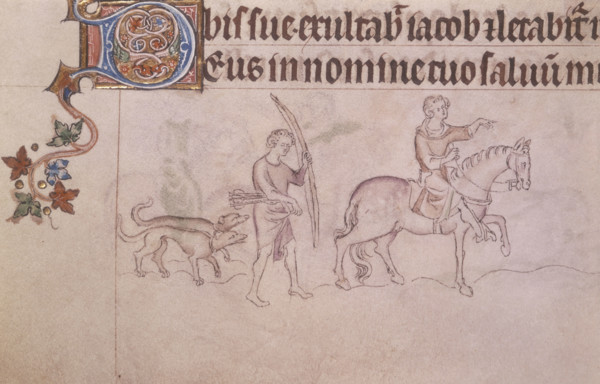 bis sue·exultab̃ iacob ⁊ letabit᷑
DEus in nomine tuo saluũ m